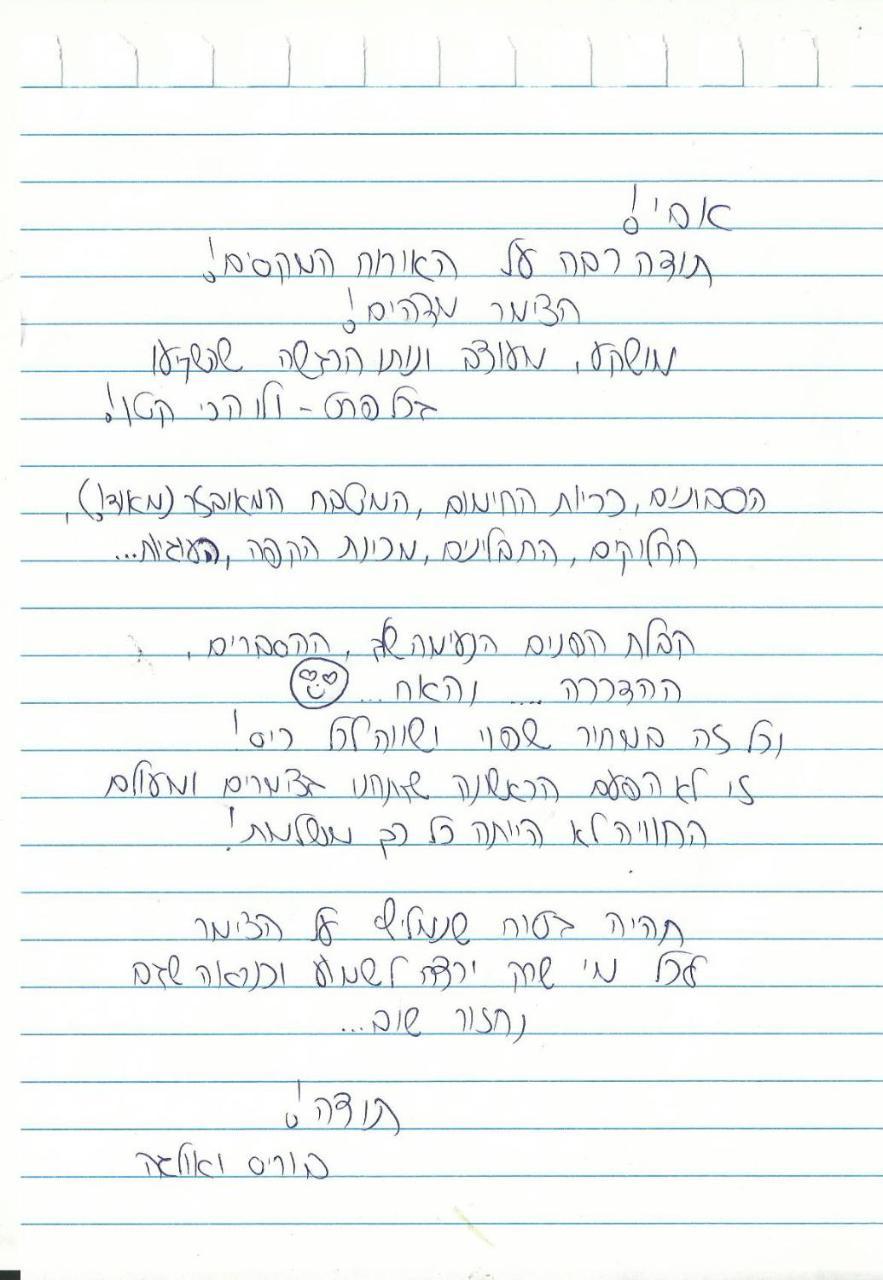 אבי!
תודה רבה על האירוח המקסים!
הצימר מדהים!
מושקע, מעוצב ונותן הרגשה שהשקיעו
בכל פרט - ולו הכי קטן!
הסבונים, כריות החימום, המטבח המאובזר (מאוד!),
החלוקים, התבלינים, מכונת הקפה, העוגיות...
קבלת הפנים הנעימה שלך, ההסברים,
ההדרכה .... והאח ...
וכל זה במחיר שפוי ושווה לכל כיס!
זו לא הפעם הראשונה שהתארחנו בצימרים ומעולם
החוויה לא הייתה כל כך מושלמת!
תהיה בטוח שנמליץ על הצימר
לכל מי שרק ירצה לשמוע וכנראה שגם
נחזור שוב...
תודה!
בוריס ואולגה